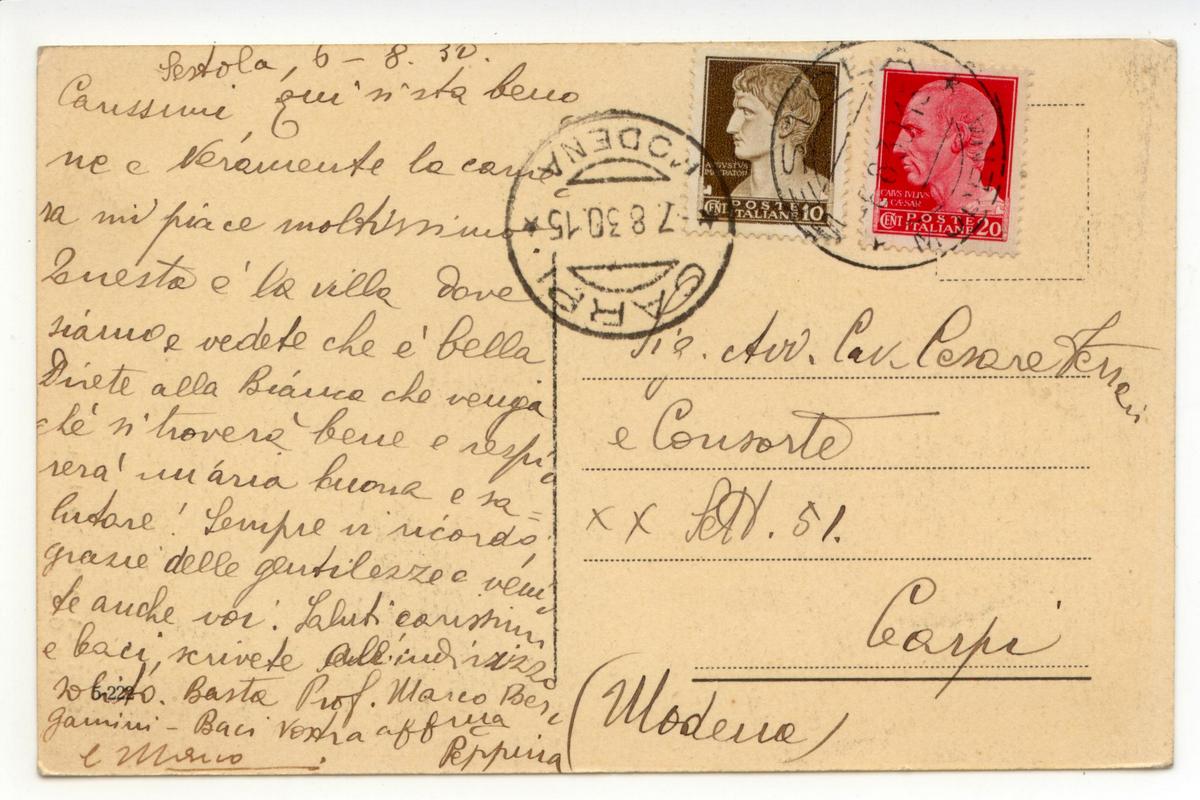 Sestola, 6 - 8. 30.
Carissimi qui si sta beno
ne e Veramente la came
ra mi piace moltissimo
Questa é la villa dove
siamo e vedete che é bella
Direte alla Bianca che venga
ché si troverà bene e respi
rerà un'aria buona e sa=
lutare! Sempre vi ricordo
grazie delle gentilezze e veni
te anche voi. Saluti carissimi
e baci, scrivete all'indirizzo
solito. Basta Prof. Marco Ber
gamini - Baci Vostra aff ma
Peppina
e Marco
5-222
CARPI
MODENA
7.8.30.15
AVGVSTVS
IMPERATOR
CENT POSTE ITALIANE 10
CAIVS IVLIVS
CÆSAR
CENT POSTE ITALIANE 20
Sig. Avv. Cav. Cesare Ferrari
e Consorte
XX Sett. 51.
Carpi
(Modena)